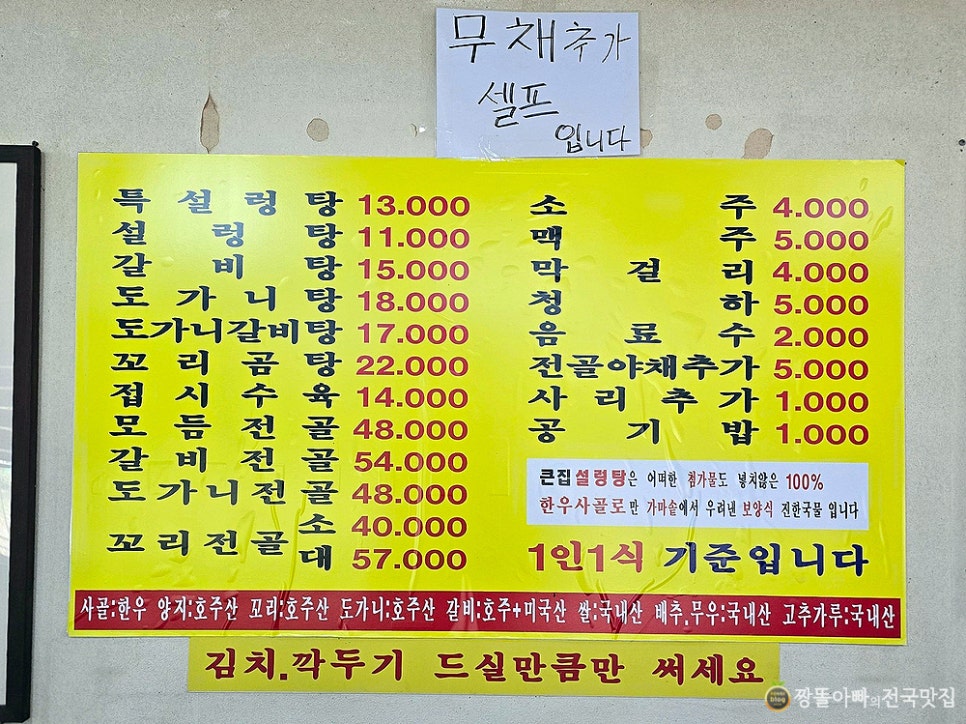 무채추가
셀프
입니다
특설렁탕 13.000
설렁탕 11.000
갈비탕 15.000
도가니탕 18.000
도가니갈비탕 17.000
꼬리곰탕 22.000
접시수육 14.000
모듬전골 48.000
갈비전골 54.000
도가니전골 48.000
꼬리전골 소 40.000
대 57.000
소주 4.000
맥주 5.000
막걸리 4.000
청하 5.000
음료수 2.000
전골야채추가 5.000
사리추가 1.000
공기밥 1.000
큰집설렁탕은 어떠한 첨가물도 넣치않은 100%
한우사골로만 가마솥에서 우려낸 보양식 진한국물 입니다
1인1식 기준입니다
사골:한우 양지:호주산 꼬리:호주산 도가니:호주산 갈비:호주+미국산 쌀:국내산 배추.무우:국내산 고추가루:국내산
김치.깍두기 드실만큼만 써세요
짱똘아빠의전국맛집